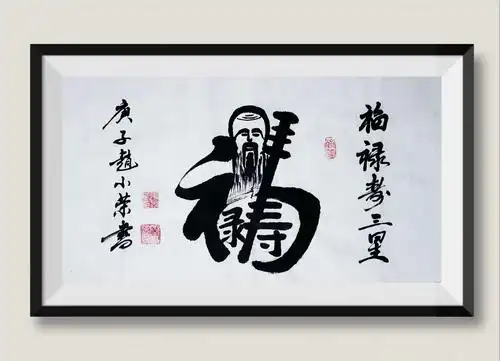 福禄寿三星
福禄寿
庚子赵小荣书